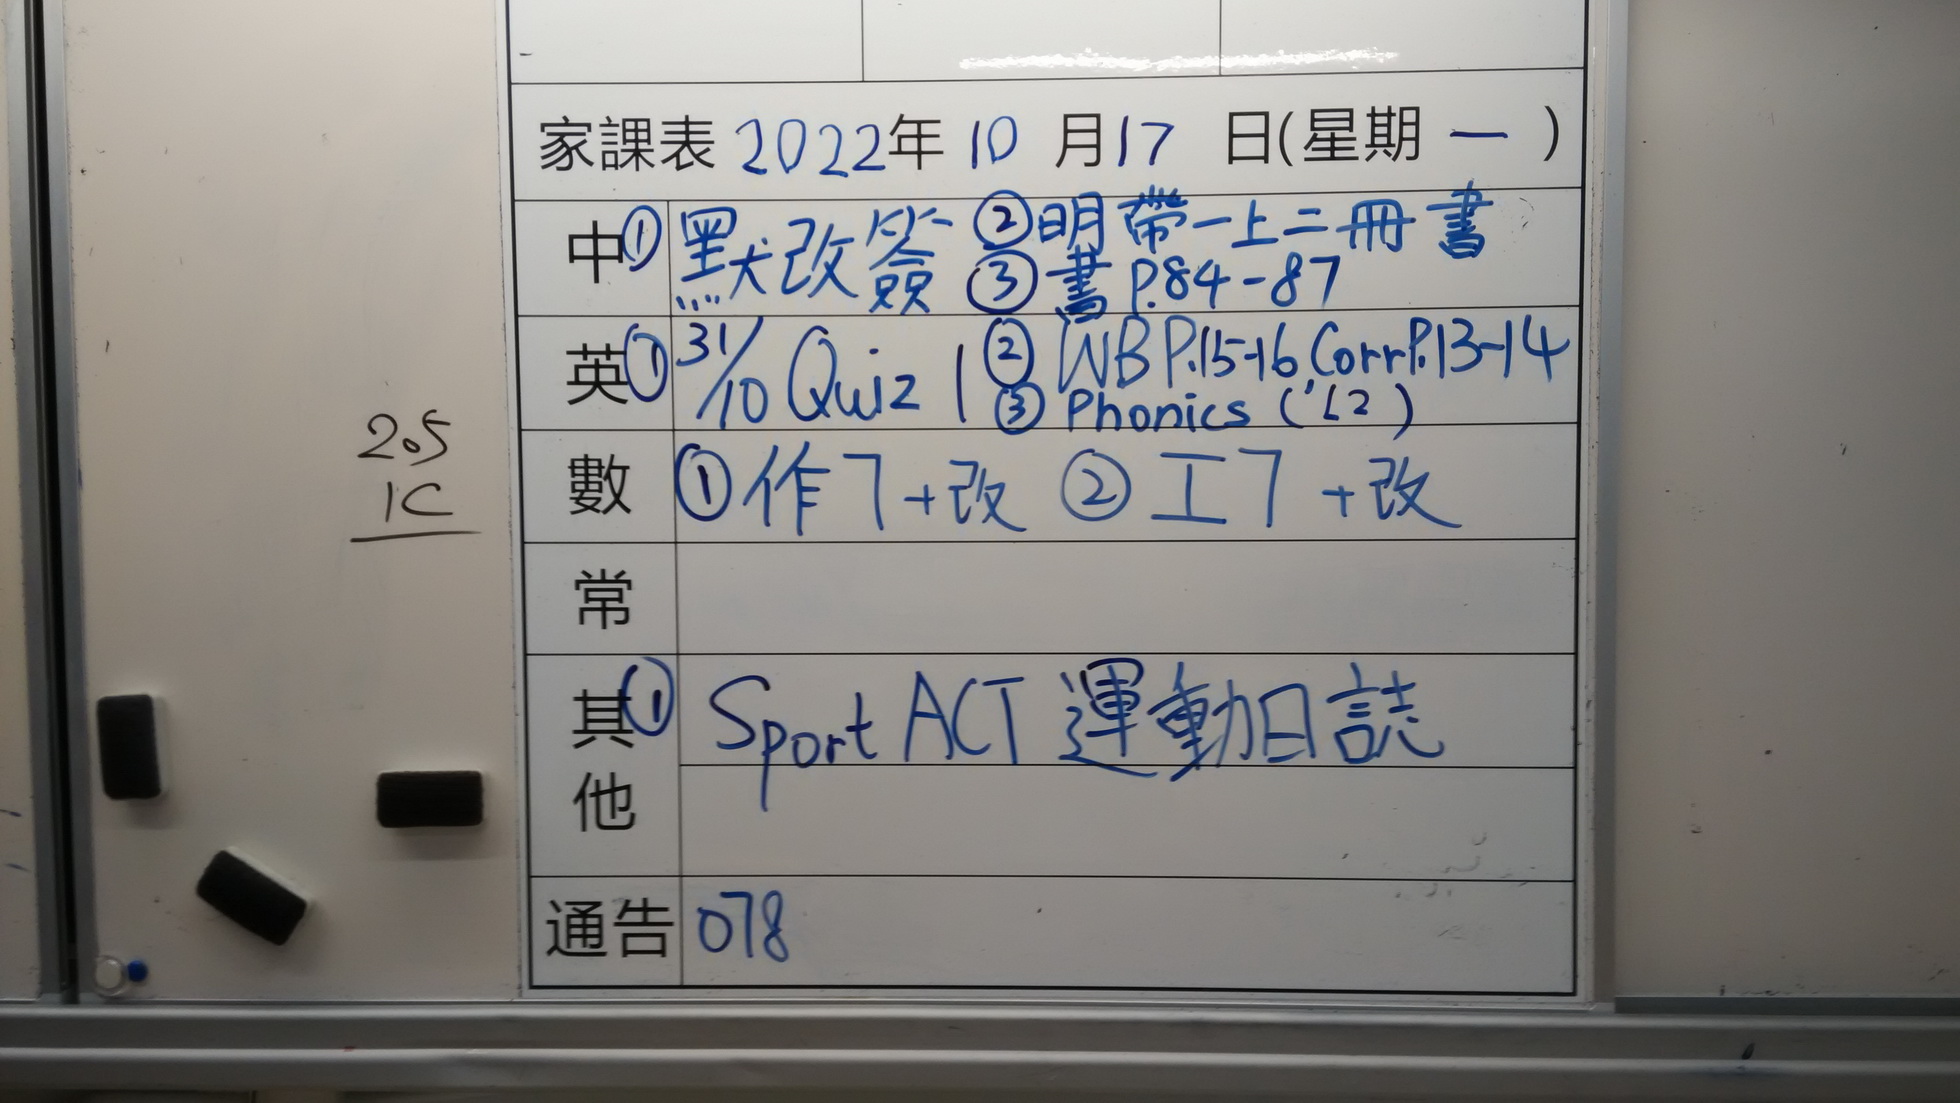 家課表 2022年 10 月 17 日(星期 一 )
中 ① 默改簽 ② 明帶一上二冊書
③ 書 P.84-87
英 ① 31/10 Quiz 1 ② WB P.15-16, Corr P.13-14
③ Phonics
數 ① 作7+改 ② 工7+改
常
其他 ① Sport ACT 運動日誌
通告 078
205
1C